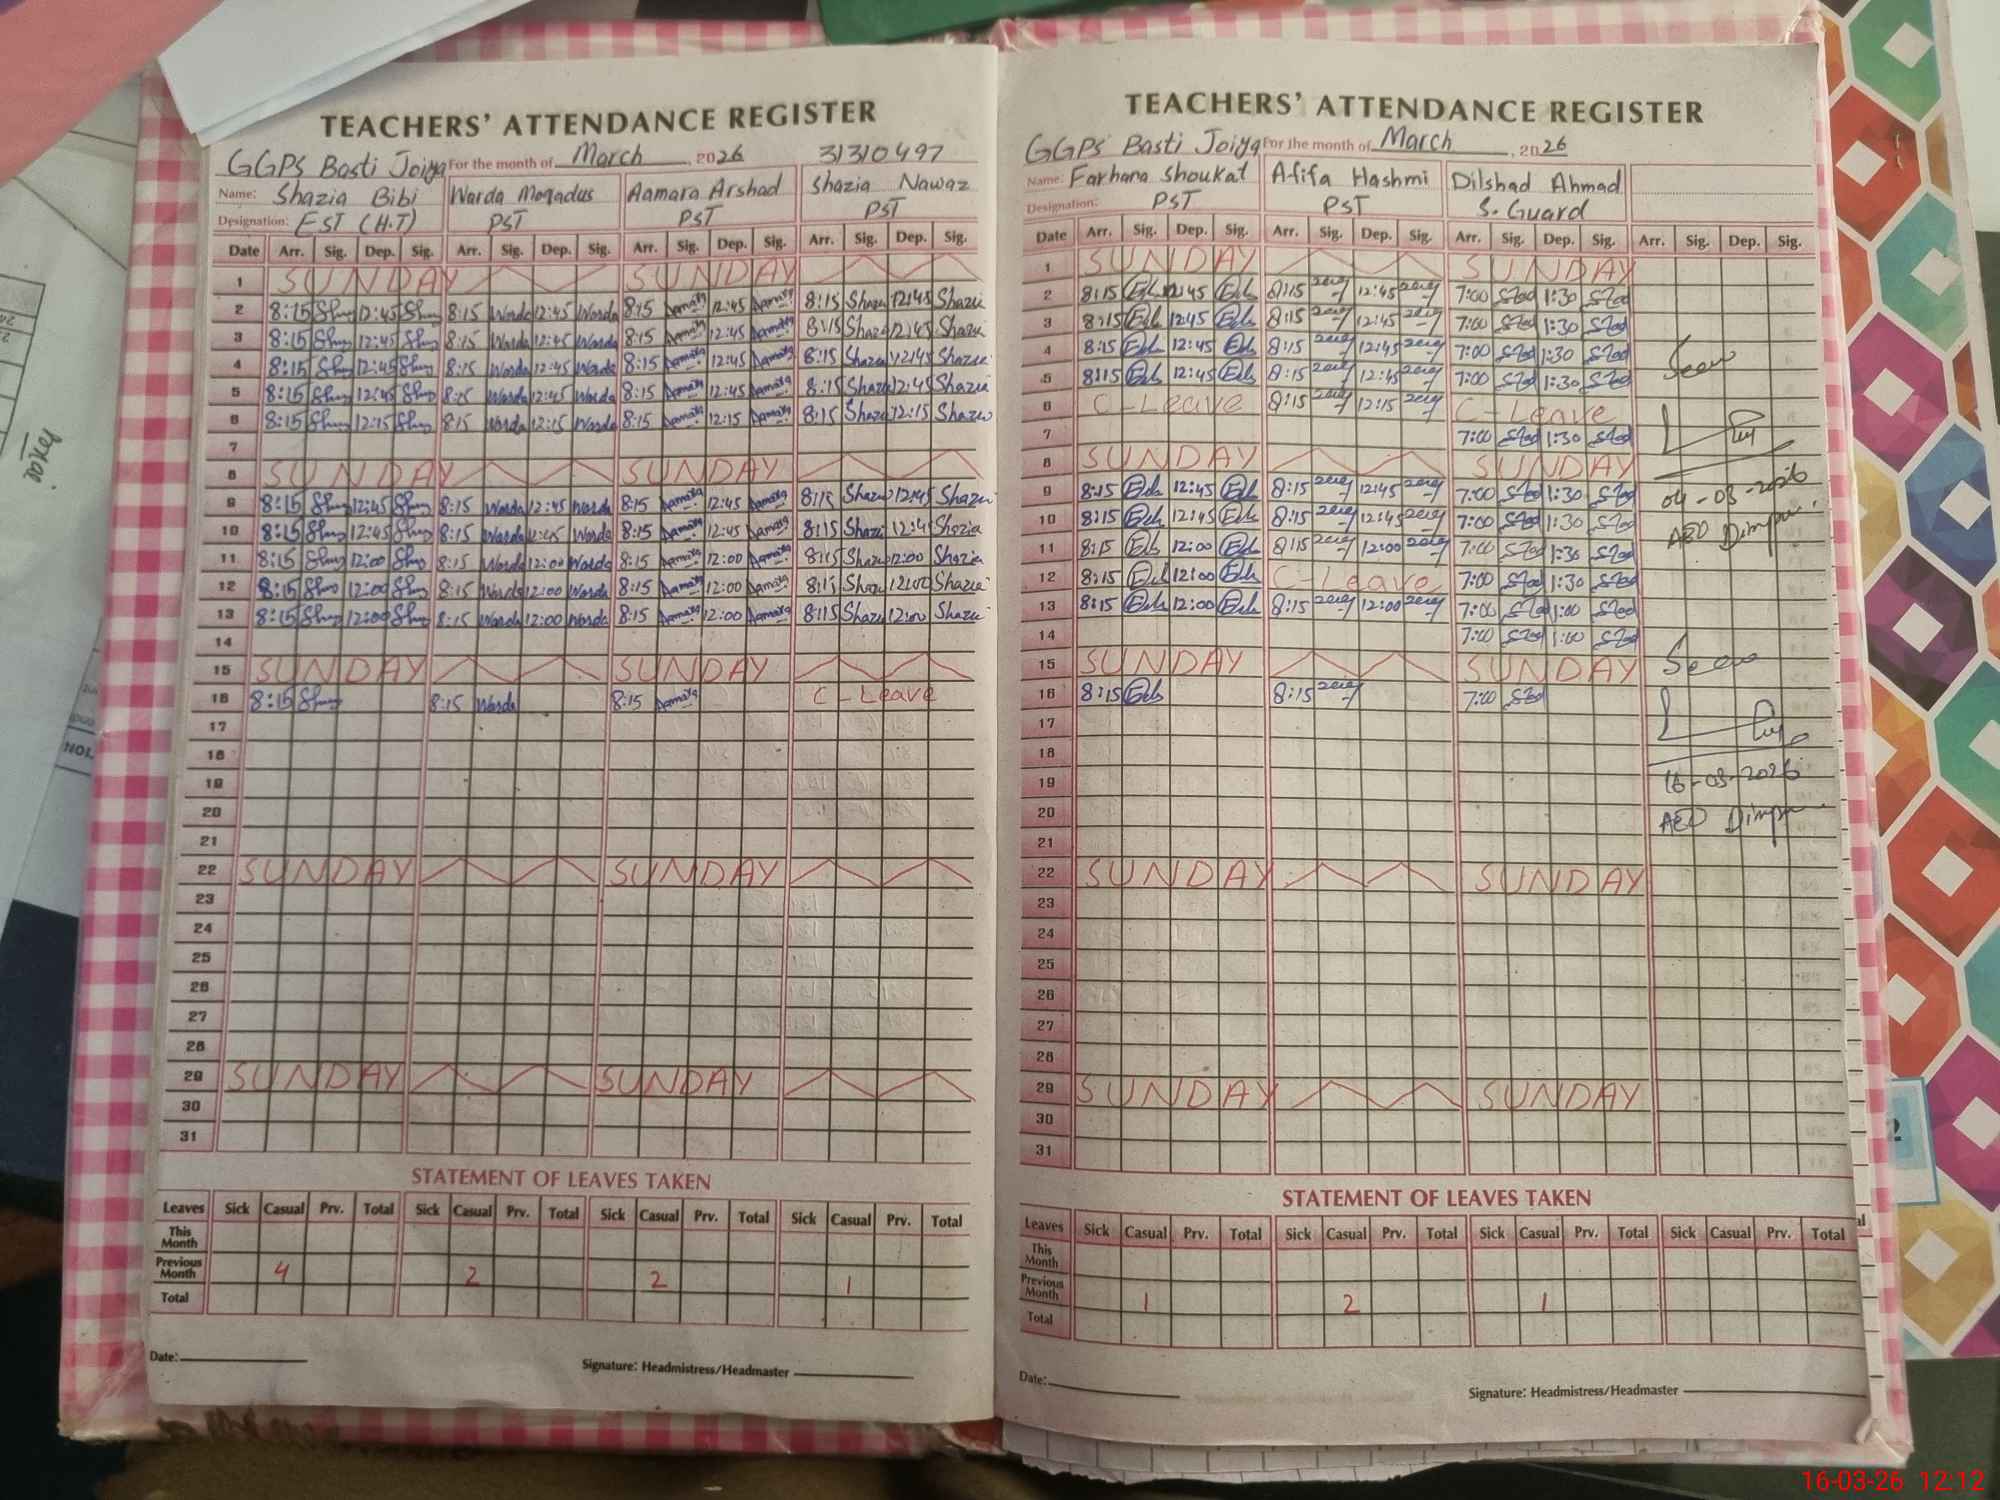 TEACHERS' ATTENDANCE REGISTER
GGPS Basti Joiya For the month of March, 2026 31310497
Name: Shazia Bibi Warda Moqadus Aamara Arshad Shazia Nawaz
Designation: EST (H.T) PST PST PST
Date Arr. Sig. Dep. Sig. Arr. Sig. Dep. Sig. Arr. Sig. Dep. Sig. Arr. Sig. Dep. Sig.
1 SUNDAY SUNDAY
2 8:15 12:45 8:15 Warda 12:45 Warda 8:15 12:45 8:15 Shazia 12:45 Shazia
3 8:15 12:45 8:15 Warda 12:45 Warda 8:15 12:45 8:15 Shazia 12:45 Shazia
4 8:15 12:45 8:15 Warda 12:45 Warda 8:15 12:45 8:15 Shazia 12:45 Shazia
5 8:15 12:45 8:15 Warda 12:45 Warda 8:15 12:45 8:15 Shazia 12:45 Shazia
6 8:15 12:15 8:15 Warda 12:15 Warda 8:15 12:15 8:15 Shazia 12:15 Shazia
7
8 SUNDAY SUNDAY
9 8:15 12:45 8:15 Warda 12:45 Warda 8:15 12:45 8:15 Shazia 12:45 Shazia
10 8:15 12:45 8:15 Warda 12:45 Warda 8:15 12:45 8:15 Shazia 12:45 Shazia
11 8:15 12:00 8:15 Warda 12:00 Warda 8:15 12:00 8:15 Shazia 12:00 Shazia
12 8:15 12:00 8:15 Warda 12:00 Warda 8:15 12:00 8:15 Shazia 12:00 Shazia
13 8:15 12:00 8:15 Warda 12:00 Warda 8:15 12:00 8:15 Shazia 12:00 Shazia
14
15 SUNDAY SUNDAY
16 8:15 8:15 Warda 8:15 C-Leave
17
18
19
20
21
22 SUNDAY SUNDAY
23
24
25
26
27
28
29 SUNDAY SUNDAY
30
31
STATEMENT OF LEAVES TAKEN
Leaves Sick Casual Prv. Total Sick Casual Prv. Total Sick Casual Prv. Total Sick Casual Prv. Total
This Month
Previous Month 4 2 2 1
Total
Date: Signature: Headmistress/Headmaster
TEACHERS' ATTENDANCE REGISTER
GGPS Basti Joiya For the month of March, 2026
Name: Farhana Shoukat Afifa Hashmi Dilshad Ahmad
Designation: PST PST S. Guard
Date Arr. Sig. Dep. Sig. Arr. Sig. Dep. Sig. Arr. Sig. Dep. Sig. Arr. Sig. Dep. Sig.
1 SUNDAY SUNDAY
2 8:15 12:45 8:15 12:45 7:00 1:30
3 8:15 12:45 8:15 12:45 7:00 1:30
4 8:15 12:45 8:15 12:45 7:00 1:30 Seen
5 8:15 12:45 8:15 12:45 7:00 1:30
6 C-Leave 8:15 12:15 C-Leave
7 7:00 1:30
8 SUNDAY SUNDAY
9 8:15 12:45 8:15 12:45 7:00 1:30 04-03-2026
10 8:15 12:45 8:15 12:45 7:00 1:30 AEO
11 8:15 12:00 8:15 12:00 7:00 1:30
12 8:15 12:00 C-Leave 7:00 1:30
13 8:15 12:00 8:15 12:00 7:00 1:00
14 7:00 1:00
15 SUNDAY SUNDAY Seen
16 8:15 8:15 7:00
17
18
19 16-03-2026
20 AEO
21
22 SUNDAY SUNDAY
23
24
25
26
27
28
29 SUNDAY SUNDAY
30
31
STATEMENT OF LEAVES TAKEN
Leaves Sick Casual Prv. Total Sick Casual Prv. Total Sick Casual Prv. Total Sick Casual Prv. Total
This Month
Previous Month 1 2 1
Total
Date: Signature: Headmistress/Headmaster
16-03-26 12:12